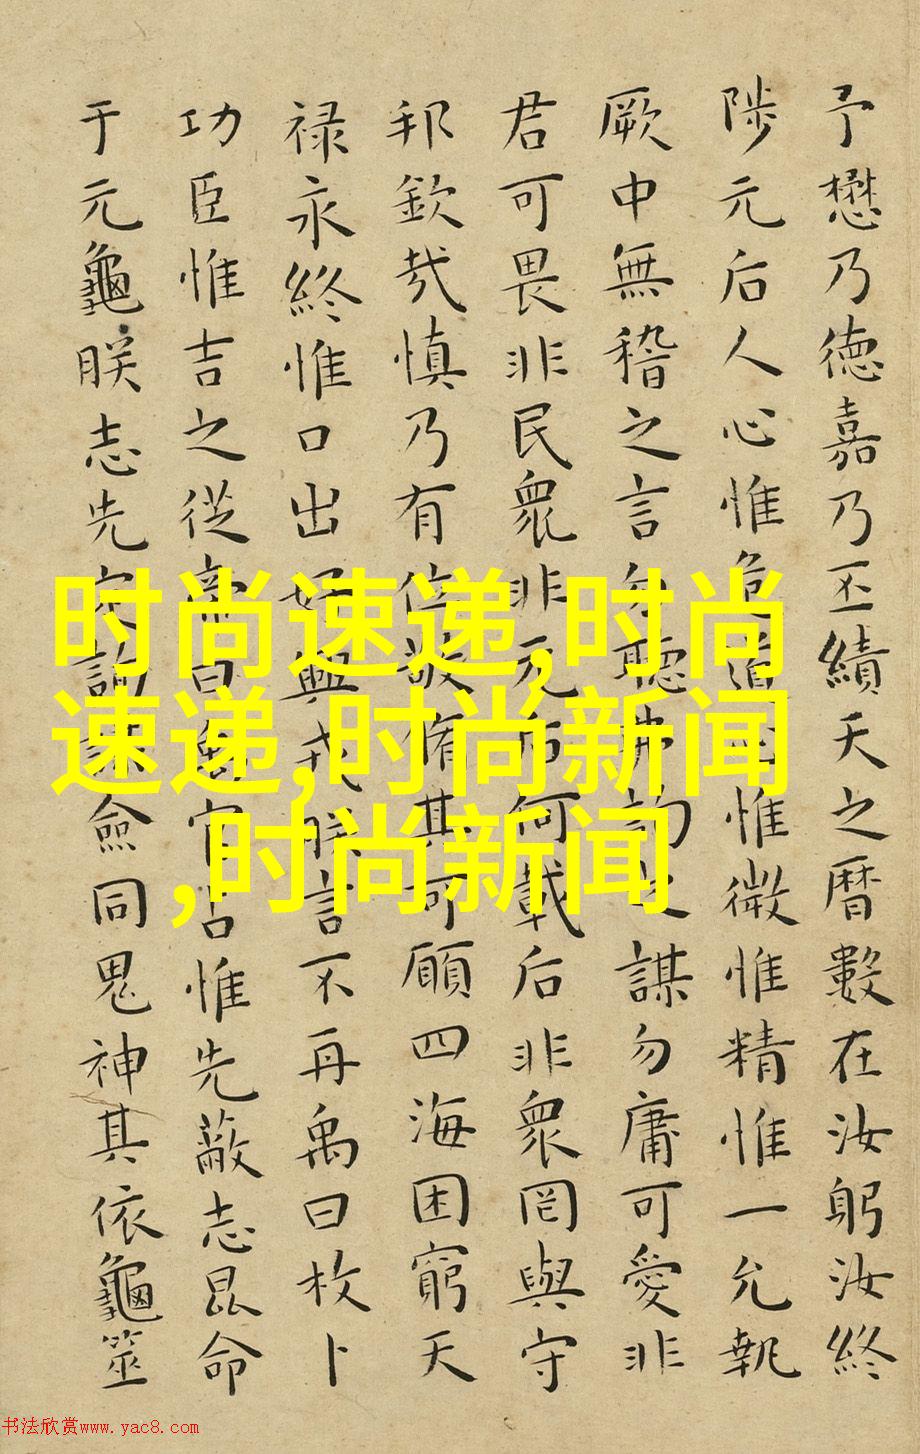 予懋乃德嘉乃丕績天之曆數在汝躬汝終
陟元后人心惟危道心惟微惟精惟一允執
厥中無稽之言勿聽弗詢之謀勿庸可愛非
君可畏非民衆非元后何戴后非衆罔與守
邦欽哉慎乃有位敬脩其可願四海困窮天
禄永終惟口出好興戎朕言不再禹曰枚卜
功臣惟吉之從帝曰禹官占惟先蔽志昆命
于元龜朕志先定詢謀僉同鬼神其依龜筮
时尚速递,时尚
速递,时尚新闻
,时尚新闻
书法欣赏www.yac8.com